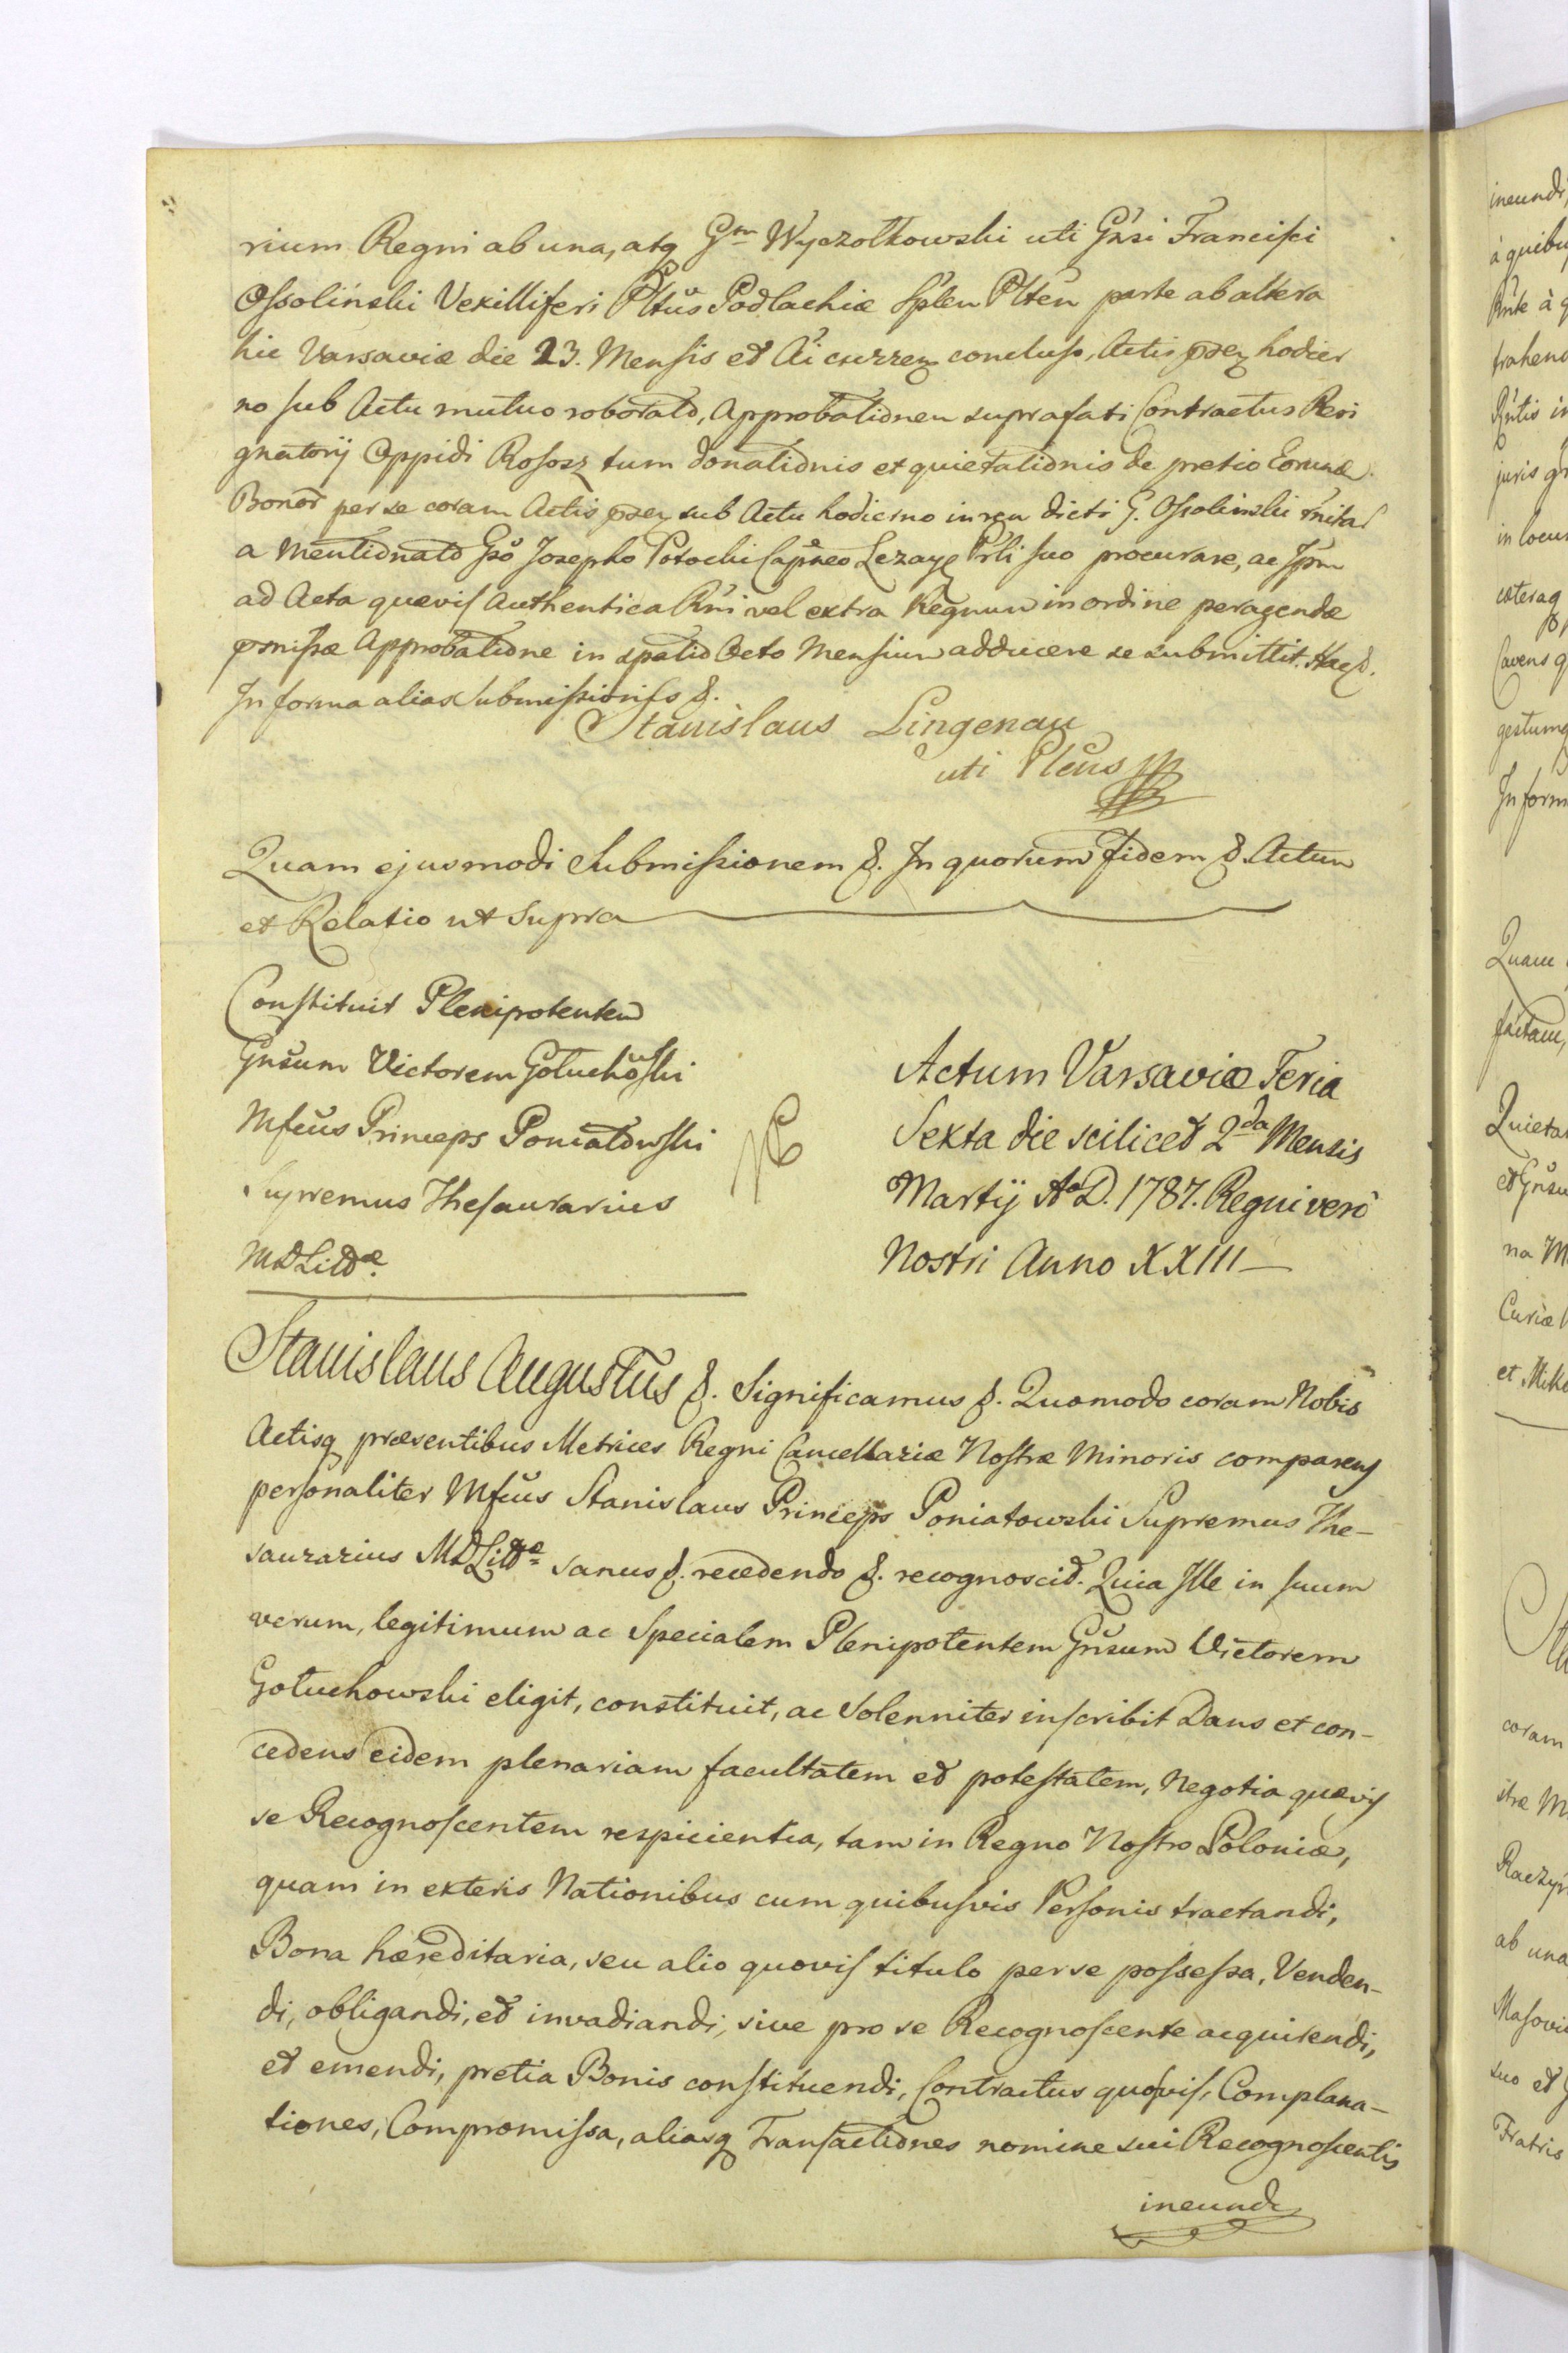 rium Regni ab una, atq Gm Wyczołkowski uti Gńsi Francisci
Ossolinski Vexilliferi Pltūs Podlachiæ Splen Plten parte ab altera
hic Varsaviæ die 23. Mensis et Ai currenę concluso, Actis hodier
no sub Actu mutuo roborato, Approbationem suprafati Contractus Resi
gnatorij Oppidi Rososz tum donationis et quietationis de pretio Eorund
Bonor per se coram Actis sub Actu hodierno in rem dicti G. Ossolinski
a mentionato Gso Josepho Potocki Capneo Lezay Prli suo procurare, ac Ipm
ad Acta quævis Authentica Rni vel extra Regnum in ordine peragendæ
Approbatione in spatio Octo Mensium adducere se submittit. Hac &.
In forma alias Submissionis &.
Stanislaus Lingenau
uti Plēus
Quam ejusmodi Submissionem &. In quorum fidem &. Actum
et Relatio ut Supra
Constituit Plenipotentem
Gnsum Victorem Gołuchowski
Mfcus Princeps Poniatowski
Supremus Thesaurarius
MDLittæ.
Actum Varsaviæ Feria
Sexta die scilicet 2da Mensis
Martij Ao D. 1787. Regni vero
Nostri Anno XXIII
Stanislaus Augustus &. Significamus &. Quomodo coram Nobis
Actisq præsentibus Metrices Regni Cancellariæ Nostræ Minoris comparens
personaliter Mfcus Stanislaus Princeps Poniatowski Supremus The-
saurarius MDLittæ sanus &. recedendo &. recognoscit. Quia Ille in suum
verum, legitimum ac Specialem Plenipotentem Gnsum Victorem
Gołuchowski eligit, constituit, ac Solenniter inscribit Dans et con-
cedens eidem plenariam facultatem et potestatem, Negotia quævis
se Recognoscentem respicientia, tam in Regno Nostro Poloniæ,
quam in exteris Nationibus cum quibusvis Personis tractandi,
Bona hæreditaria, seu alio quovis titulo per se possessa, Venden-
di, obligandi, et invadiandi, sive pro se Recognoscente acquirendi,
et emendi, pretia Bonis constituendi, Contractus quosvis, Complana-
tiones, Compromissa, aliasq Transactiones nomine sui Recognoscentis
ineundi